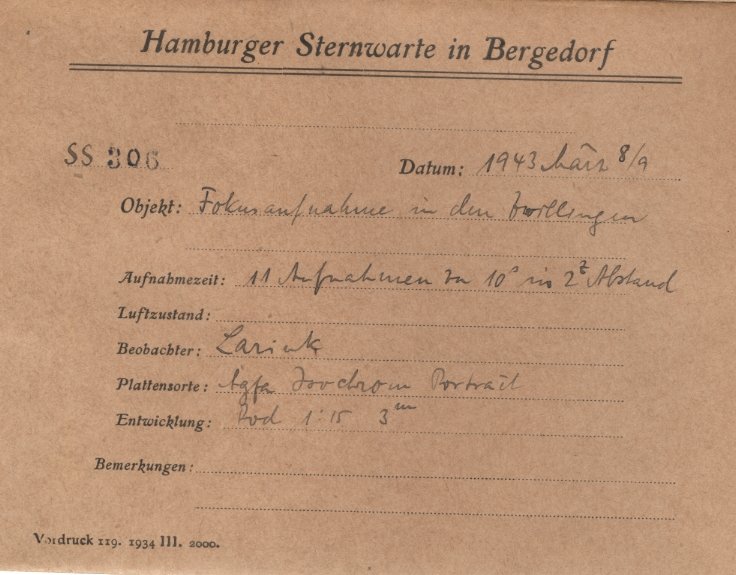 Hamburger Sternwarte in Bergedorf
SS 306
Datum: 1943 März 8/9
Objekt: Fokusaufnahme in den Zwillingen
Aufnahmezeit: 11 Aufnahmen zu 10ˢ in 2ᶻ Abstand
Luftzustand:
Beobachter: Larink
Plattensorte: Agfa Isochrom Portrait
Entwicklung: Rod 1:15 3ᵐ
Bemerkungen:
Vordruck 119. 1934 III. 2000.